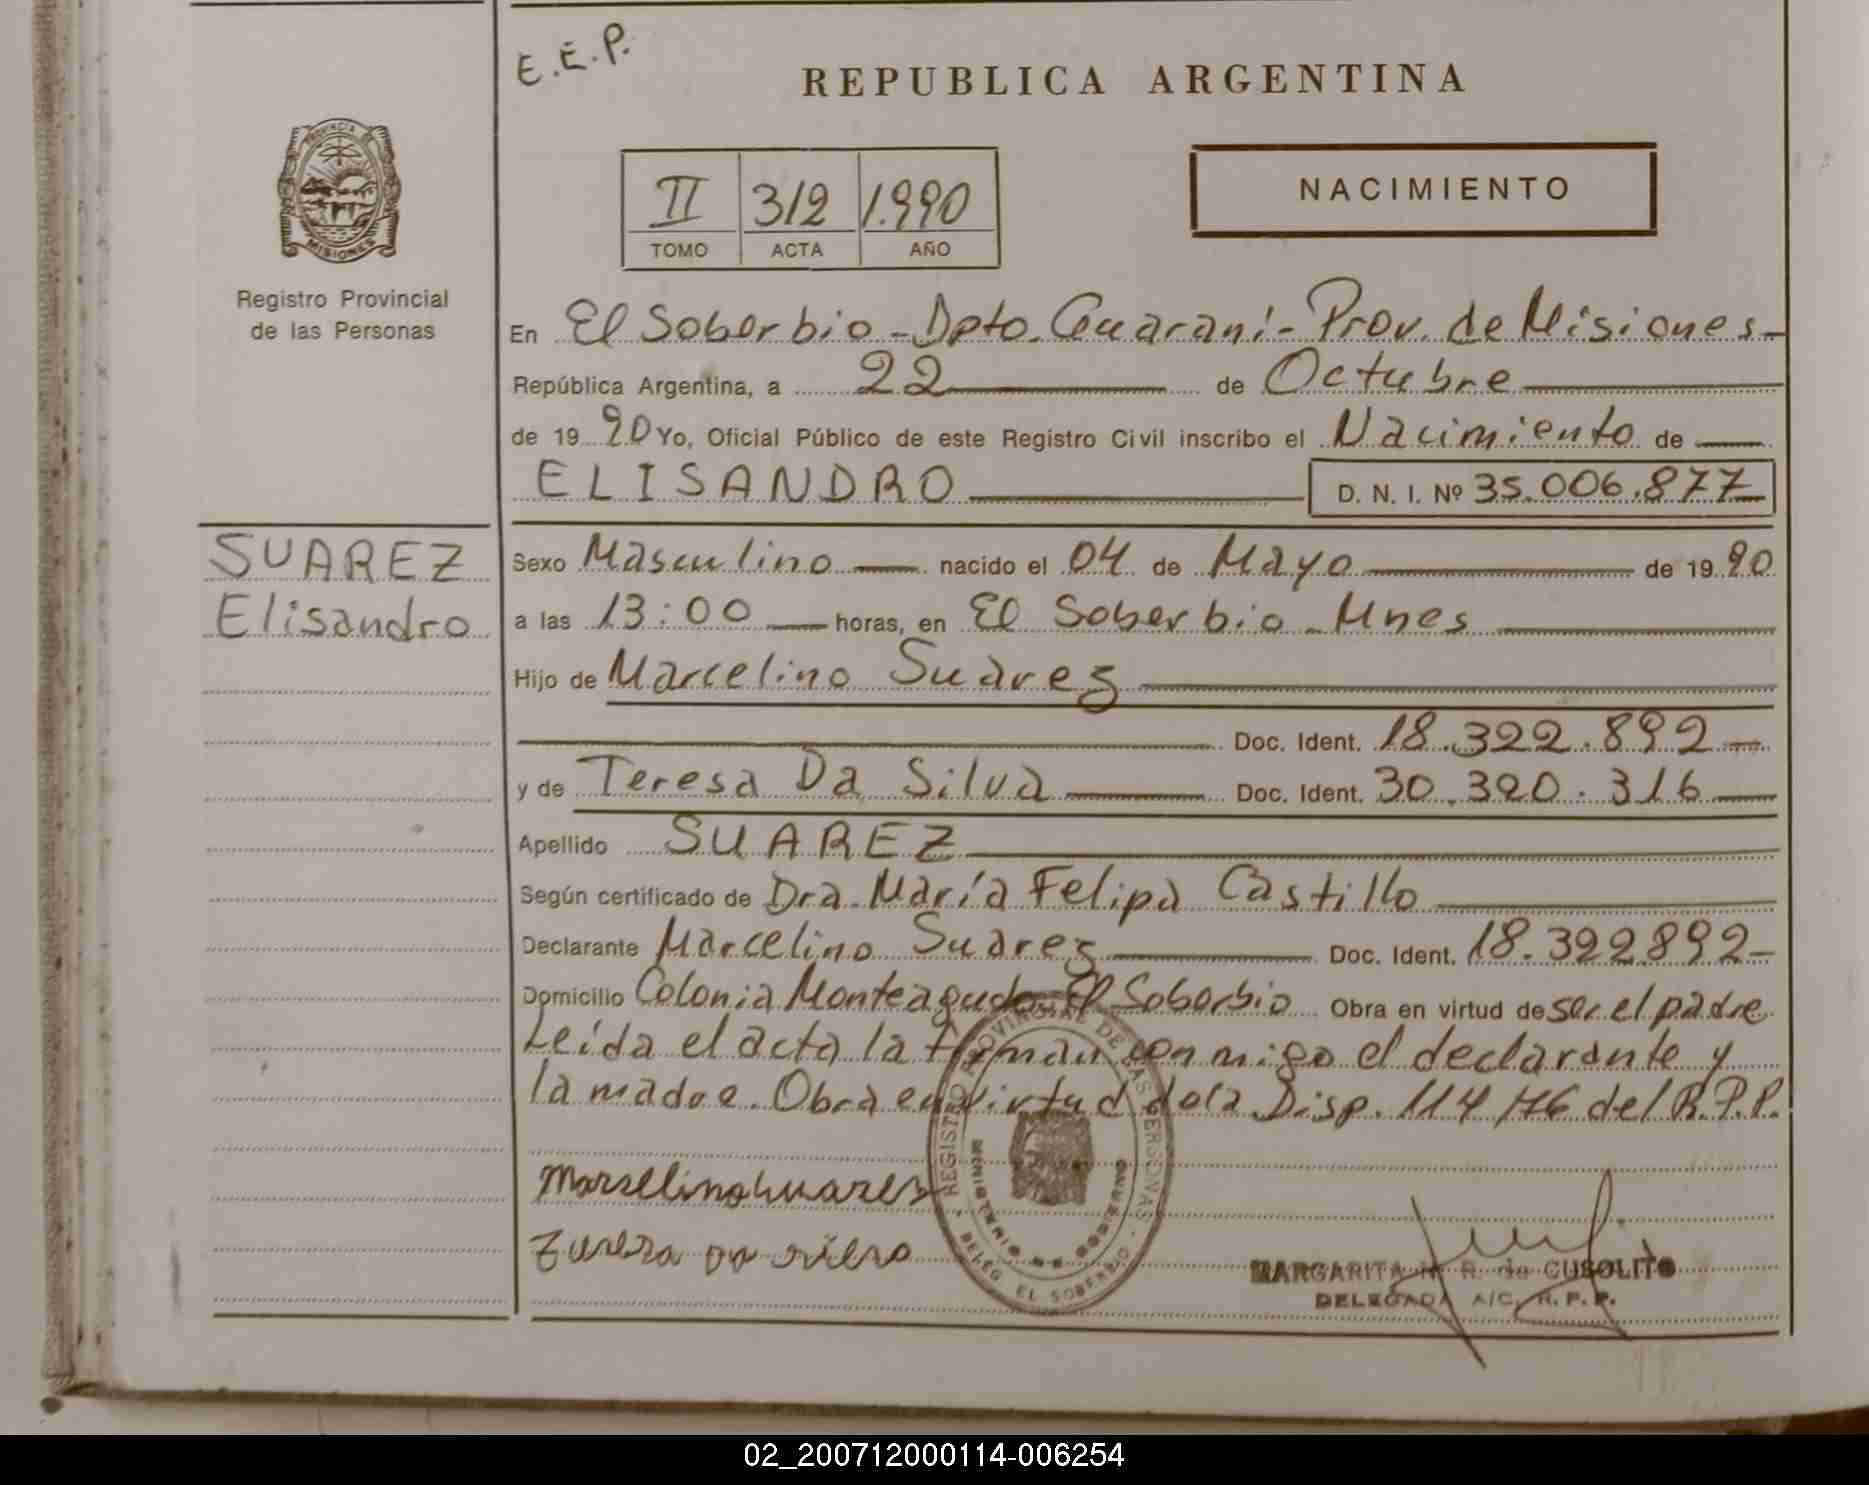 E.E.P.
REPUBLICA ARGENTINA
PROVINCIA DE
MISIONES
II 312 1.990
TOMO ACTA AÑO
NACIMIENTO
Registro Provincial
de las Personas
En El Soberbio - Dpto. Guaraní - Prov. de Misiones -
República Argentina, a 22 de Octubre
de 19 90 Yo, Oficial Público de este Registro Civil inscribo el Nacimiento de
ELISANDRO D. N. I. Nº 35.006.877
SUAREZ
Elisandro
Sexo Masculino nacido el 04 de Mayo de 19 90
a las 13:00 horas, en El Soberbio - Mnes
Hijo de Marcelino Suárez
Doc. Ident. 18.322.892
y de Teresa Da Silva Doc. Ident. 30.320.316
Apellido SUAREZ
Según certificado de Dra. María Felipa Castillo
Declarante Marcelino Suárez Doc. Ident. 18.322892
Domicilio Colonia Monteagudo - El Soberbio Obra en virtud de ser el padre
Leída el acta la firman conmigo el declarante y
la madre. Obra en virtud de la Disp. 114/76 del R.P.P.
REGISTRO PROVINCIAL DE LAS PERSONAS
MINISTERIO DE GOBIERNO
DELEG. EL SOBERBIO
MARGARITA R. de CUSOLITO
DELEGADA A/C. R. P. P.
02_200712000114-006254